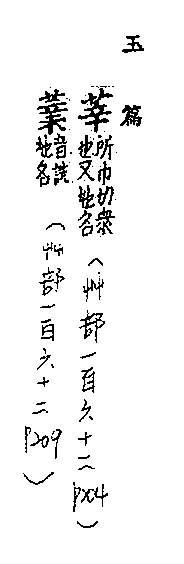 玉篇
莘所巾切眾也又地名(艸部一百六十二
音地名(艸部一百六十二P209)